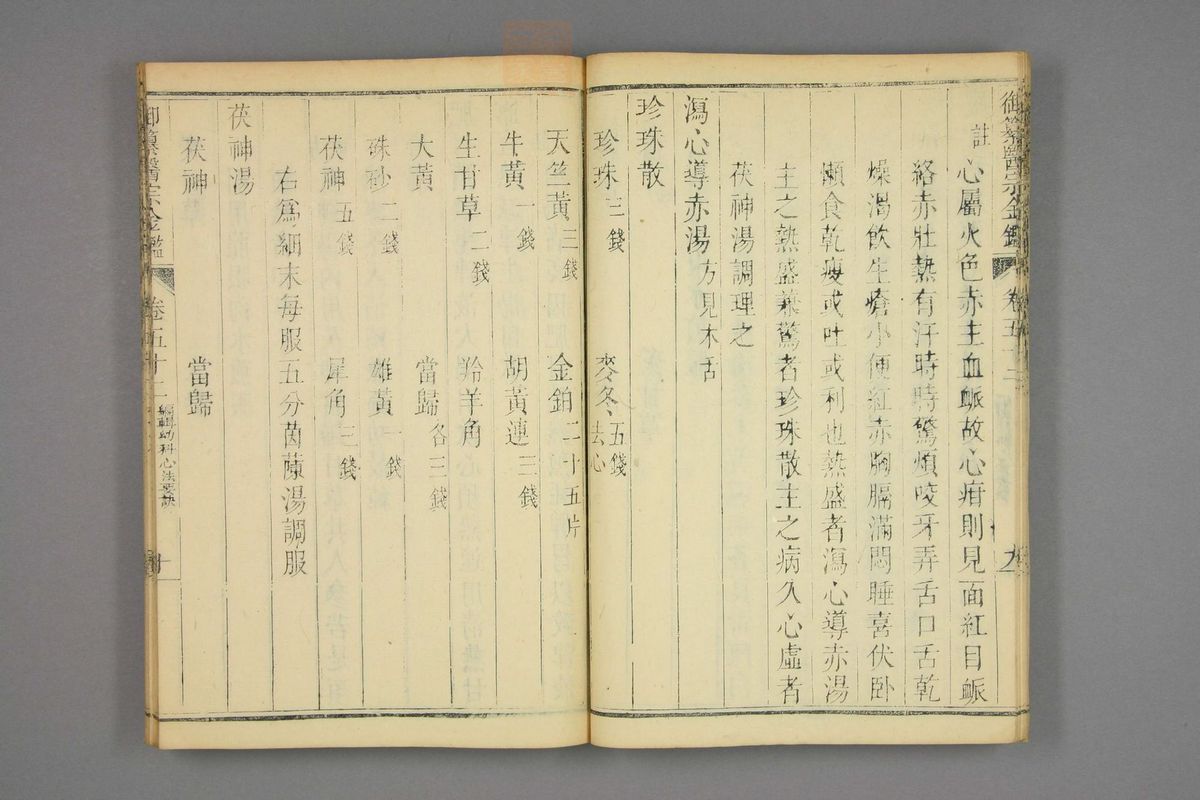 御纂醫宗金鑑 卷五十二 九
註 心屬火色赤主血脈故心疳則見面紅目脈
絡赤壯熱有汗時時驚煩咬牙弄舌口舌乾
燥渴飲生瘡小便紅赤胸膈滿悶睡喜伏卧
懶食乾瘦或吐或利也熱盛者瀉心導赤湯
主之熱盛兼驚者珍珠散主之病久心虛者
茯神湯調理之
瀉心導赤湯 方見木舌
珍珠散
珍珠三錢 麥冬去心五錢
天竺黃三錢 金鉑二十五片
牛黃一錢 胡黃連三錢
生甘草二錢 羚羊角
大黃 當歸各三錢
硃砂二錢 雄黃一錢
茯神五錢 犀角三錢
右爲細末每服五分茵蔯湯調服
茯神湯
茯神 當歸
御纂醫宗金鑑 卷五十二 編輯幼科心法要訣 十